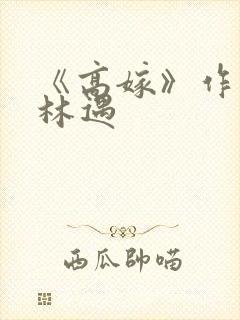 《高嫁》作
林遇
西瓜帥喵